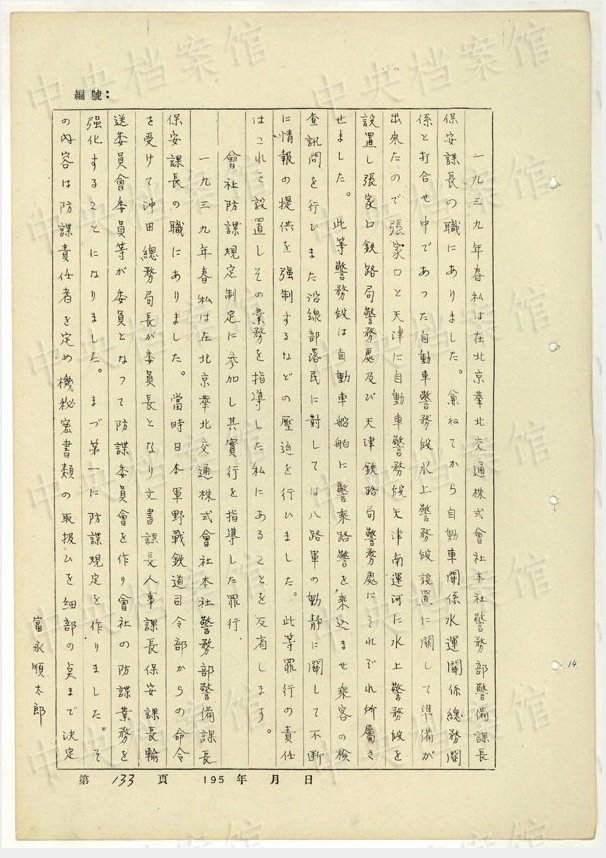 編號：
一九三九年春私は在北京華北交通株式會社本社警務部警備課長
保安課長の職にありました。兼ねてから自動車關係水運關係總務關
係と打合せ中であつた自動車警務段水上警務段設置に關して準備が
出來たので張家口と天津に自動車警務段天津南運河に水上警務段を
設置し張家口鉄路局警務處及び天津鉄路局警務處にそれぞれ所屬さ
せました。此等警務段は自動車船舶に警乘路警を乘込ませ乘客の檢
査訊問を行ひまた沿線部落民に対しては八路軍の動靜に關して不断
に情報の提供を強制するなどの壓迫を行ひました。此等罪行の責任
はこれを設置しその業務を指導した私にあることを反省します。
會社防諜規定制定に参加し其實行を指導した罪行
一九三九年春私は在北京華北交通株式會社本社警務部警備課長
保安課長の職にありました。當時日本軍野戰鉄道司令部からの命令
を受けて沖田總務局長が委員長となり文書課長人事課長保安課長輸
送委員會委員等が委員となつて防諜委員會を作り會社の防諜業務を
強化することになりました。まづ第一に防諜規定を作りました。そ
の内容は防諜責任者を定め機秘密書類の取扱ひを細部の点まで決定
富永順太郎
14
第 133 頁 195 年 月 日
中央档案馆